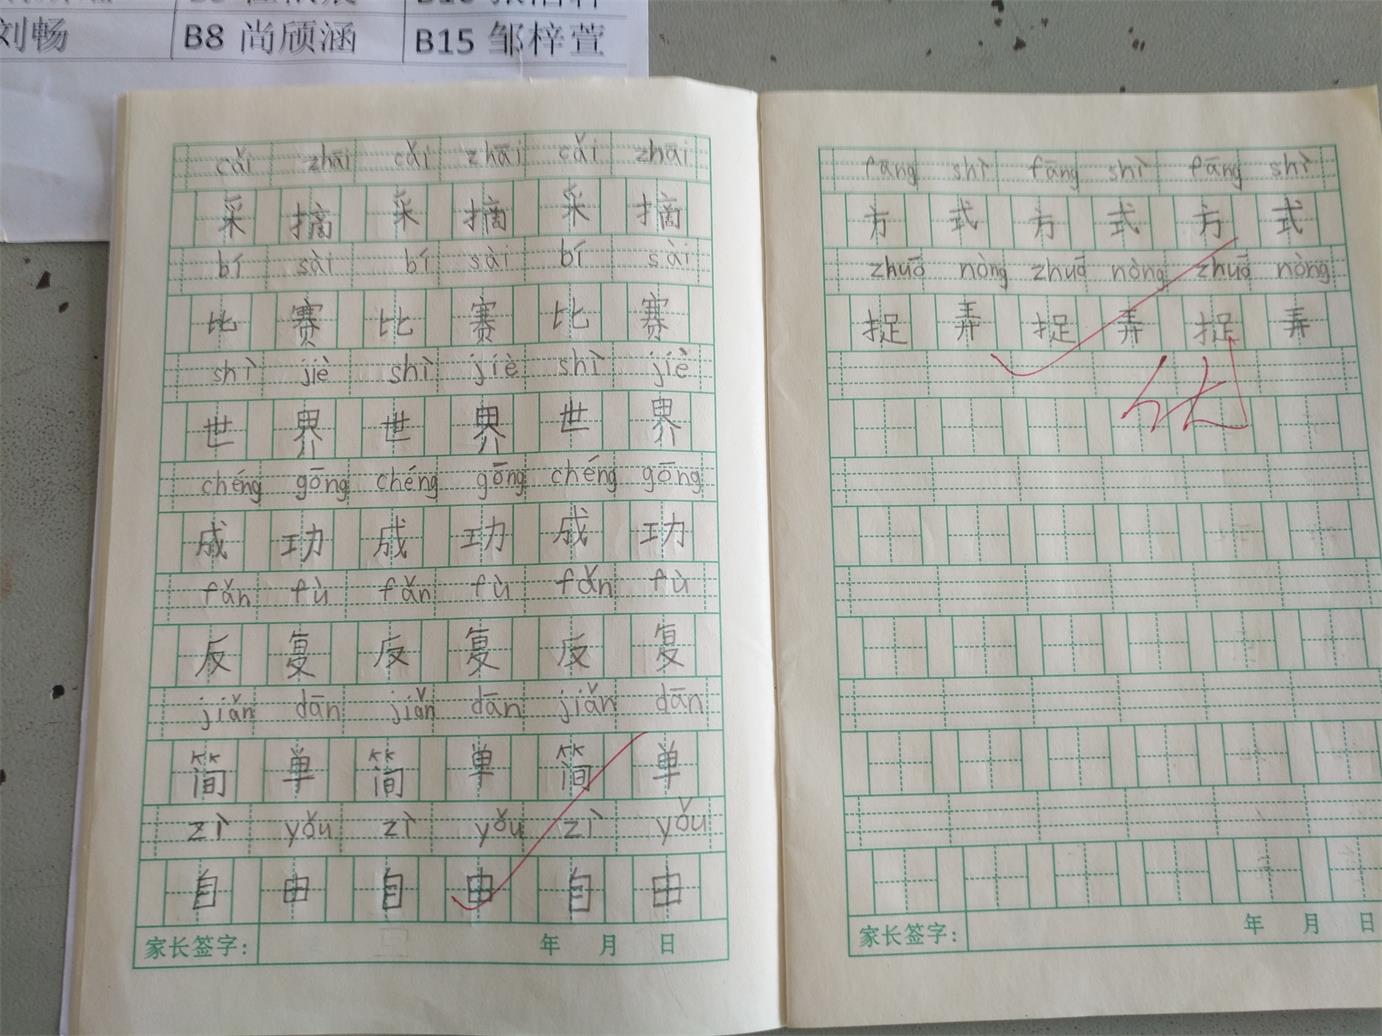 刘畅 B8 尚颀涵 B15 邹梓萱
cǎi zhāi cǎi zhāi cǎi zhāi
采 摘 采 摘 采 摘
bí sài bí sài bí sài
比 赛 比 赛 比 赛
shì jiè shì jiè shì jiè
世 界 世 界 世 界
chéng gōng chéng gōng chéng gōng
成 功 成 功 成 功
fǎn fù fǎn fù fǎn fù
反 复 反 复 反 复
jiǎn dān jiǎn dān jiǎn dān
简 单 简 单 简 单
zì yǒu zì yǒu zì yǒu
自 由 自 由 自 由
家长签字: 年 月 日
fāng shì fāng shì fāng shì
方 式 方 式 方 式
zhuō nòng zhuō nòng zhuō nòng
捉 弄 捉 弄 捉 弄
优
家长签字: 年 月 日